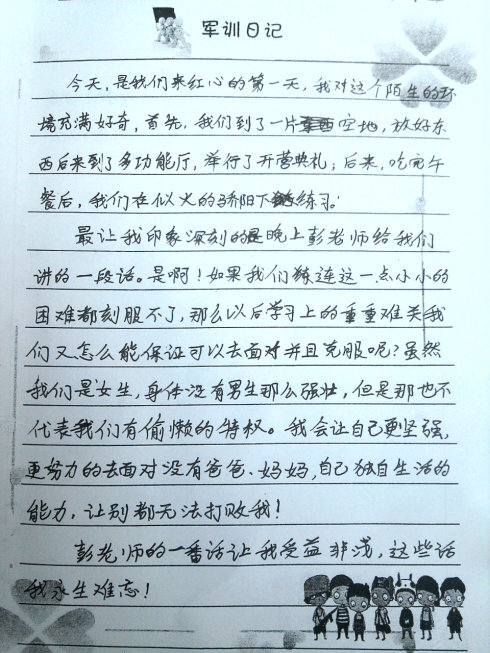 军训日记
今天，是我们来红心的第一天，我对这个陌生的环
境充满好奇，首先，我们到了一片空地，放好东
西后来到了多功能厅，举行了开营典礼；后来，吃完午
餐后，我们在似火的骄阳下练习。
最让我印象深刻的是晚上彭老师给我们
讲的一段话。是啊！如果我们连这一点小小的
困难都刻服不了，那么以后学习上的重重难关我
们又怎么能保证可以去面对并且克服呢？虽然
我们是女生，身体没有男生那么强壮，但是那也不
代表我们有偷懒的特权。我会让自己更坚强，
更努力的去面对没有爸爸、妈妈，自己独自生活的
能力，让别都无法打败我！
彭老师的一番话让我受益非浅，这些话
我永生难忘！